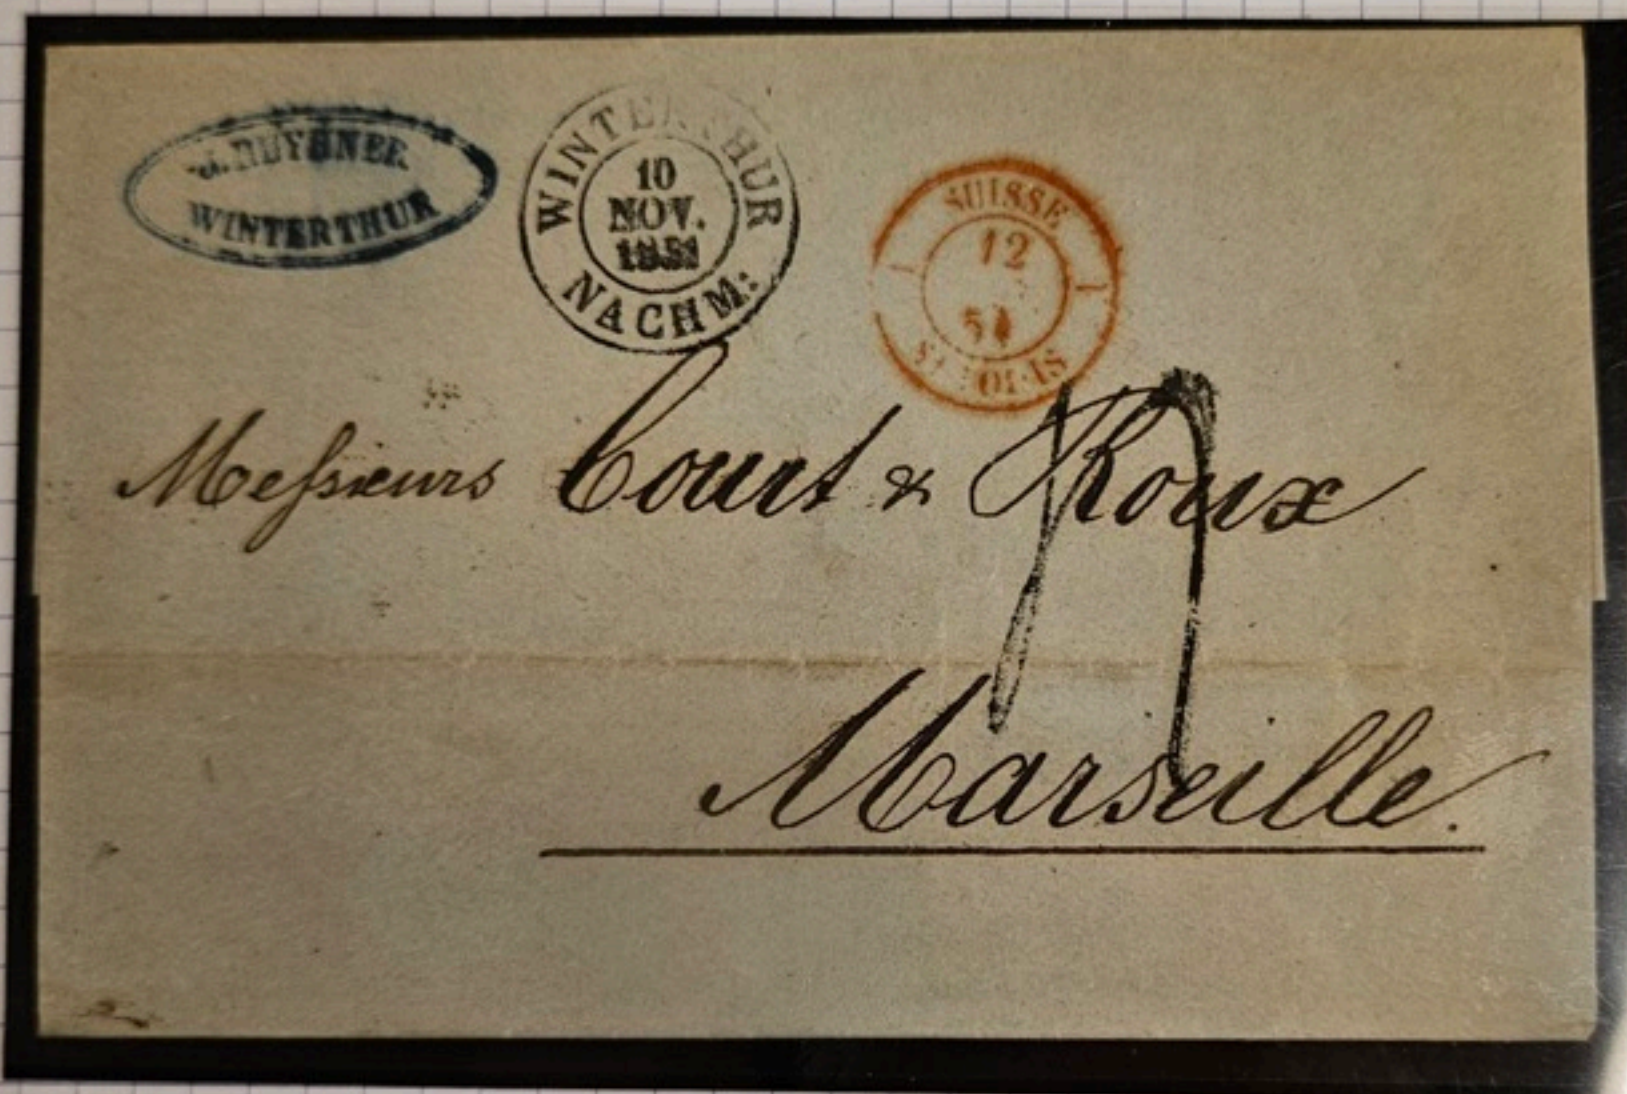 WINTERTHUR
WINTERTHUR
10
NOV.
1851
NACHM:
SUISSE
12
51
Messieurs Court & Roux
Marseille.